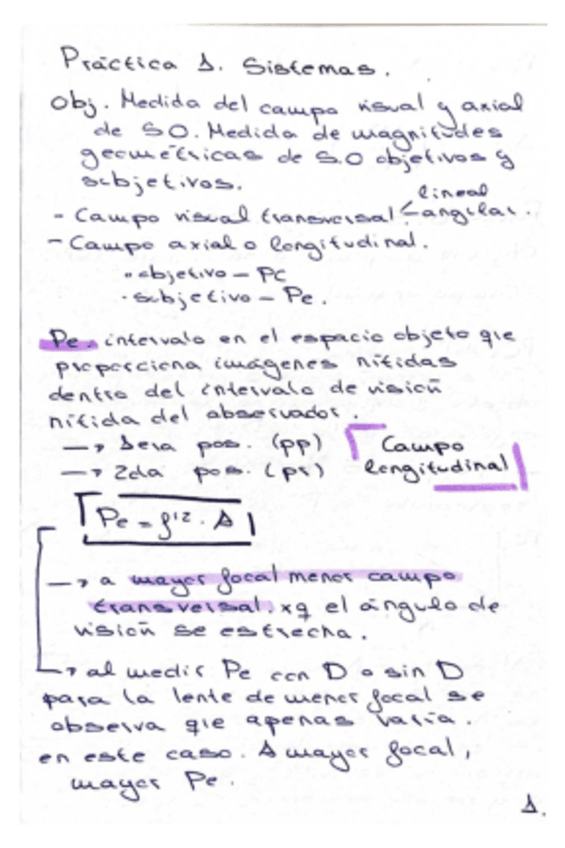 Práctica 1. Sistemas.
Obj. Medida del campo visual y axial
de SO. Medida de magnitudes
geométricas de S.O objetivos y
subjetivos.
lineal
- Campo visual transversal < angular.
- Campo axial o longitudinal.
· objetivo - PC
· subjetivo - Pe.
Pe. intervalo en el espacio objeto que
proporciona imágenes nítidas
dentro del intervalo de visión
nítida del observador.
→ 1era pos. (pp)
→ 2da pos. (pr)
Campo
longitudinal
Pe = f'². A
→ a mayor focal menor campo
transversal. xq el ángulo de
visión se estrecha.
→ al medir Pe con D o sin D
para la lente de menor focal se
observa que apenas varía.
en este caso. A mayor focal,
mayor Pe.
1.